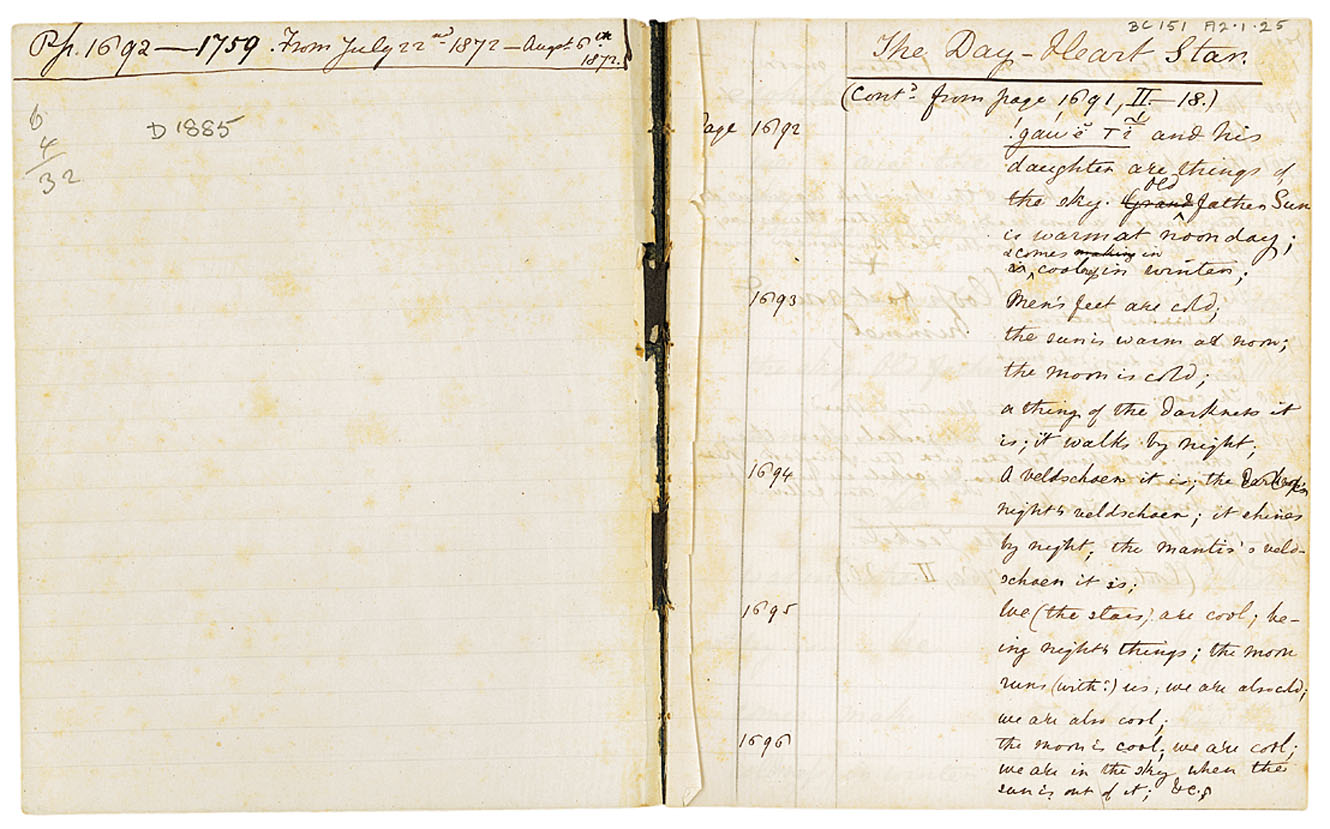 Pp. 1692 — 1759. From July 22nd 1872 — Augst. 6th
1872.
6
4
32
D 1885
BC 151 A2.1.25
The Day-Heart Star.
(Contd from page 1691, II.—18.)
Page 1692
and his
daughter are things of
old
the sky. Grandfather Sun
is warm at noonday;
comes making in
is cool in winter;
1693 Men's feet are cold;
the sun is warm at noon;
the moon is cold;
a thing of the darkness it
is; it walks by night;
1694 A veldschoen it is; the
night's veldschoen; it shines
by night; the mantis's veld-
schoen it is;
1695 We (the stars) are cool; be-
ing night's things; the moon
runs (with?) us; we are also cold;
we are also cool;
1696 the moon is cool; we are cool;
we are in the sky when the
sun is out of it; &c.